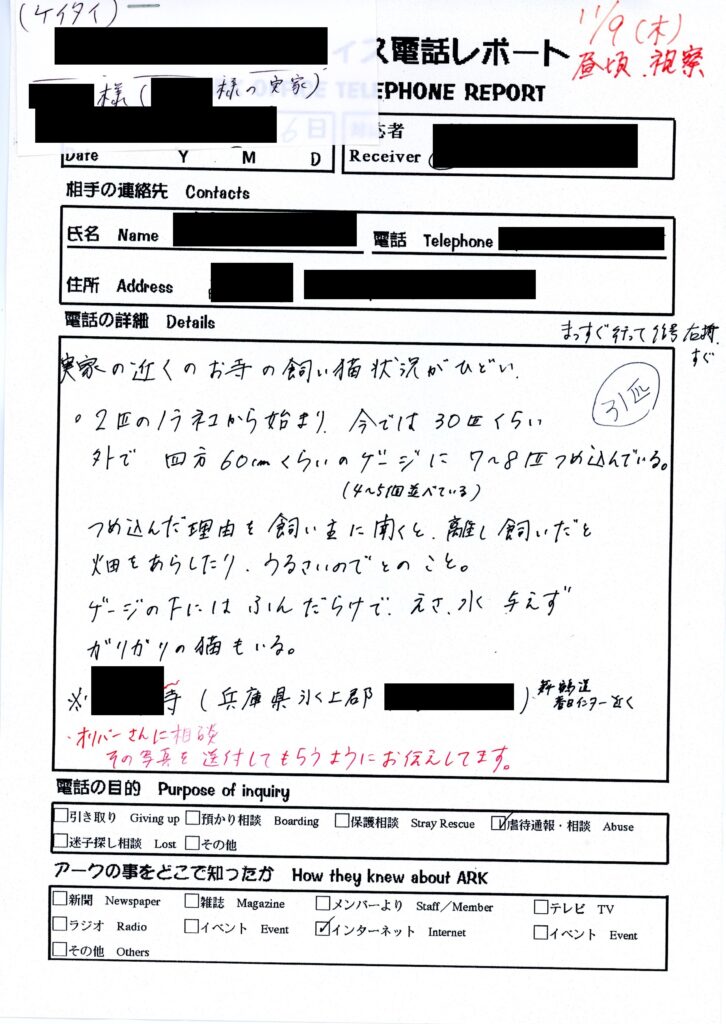 (ケイタイ)
11/9(木)
昼頃 視察
ス電話レポート
EPHONE REPORT
様( 様の実家)
6日
Date Y M D
応者
Receiver
相手の連絡先 Contacts
氏名 Name
電話 Telephone
住所 Address
電話の詳細 Details
まっすぐ行って 信号右折
すぐ
実家の近くのお寺の飼い猫状況がひどい.
31匹
・2匹のノラネコから始まり、今では30匹くらい
外で 四方60cmくらいのゲージに 7〜8匹つめ込んでいる。
(4〜5個並べている)
つめ込んだ理由を飼い主に聞くと、離し飼いだと
畑をあらしたり、うるさいのでとのこと。
ゲージの下にはふんだらけで、えさ、水 与えず
ガリガリの猫もいる。
※ 寺(兵庫県氷上郡 )舞鶴道
春日インター近く
・オリバーさんに相談
その写真を送付してもらうようにお伝えしてます。
電話の目的 Purpose of inquiry
引き取り Giving up 預かり相談 Boarding 保護相談 Stray Rescue 虐待通報・相談 Abuse
迷子探し相談 Lost その他
アークの事をどこで知ったか How they knew about ARK
新聞 Newspaper 雑誌 Magazine メンバーより Staff/Member テレビ TV
ラジオ Radio イベント Event インターネット Internet イベント Event
その他 Others